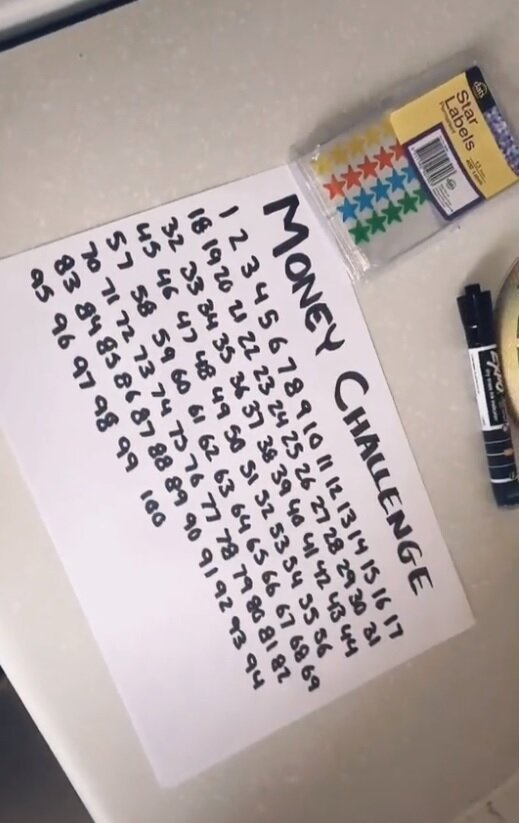 MONEY CHALLENGE
1 2 3 4 5 6 7 8 9 10 11 12 13 14 15 16 17
18 19 20 21 22 23 24 25 26 27 28 29 30 31
32 33 34 35 36 37 38 39 40 41 42 43 44
45 46 47 48 49 50 51 52 53 54 55 56
57 58 59 60 61 62 63 64 65 66 67 68 69
70 71 72 73 74 75 76 77 78 79 80 81 82
83 84 85 86 87 88 89 90 91 92 93 94
95 96 97 98 99 100
dats
Star
Labels
Permanent
EXPO